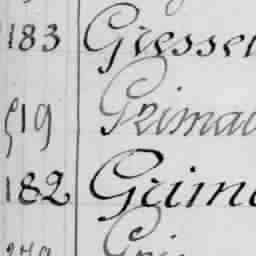 183 Gresse
519 Grima
182 Grim